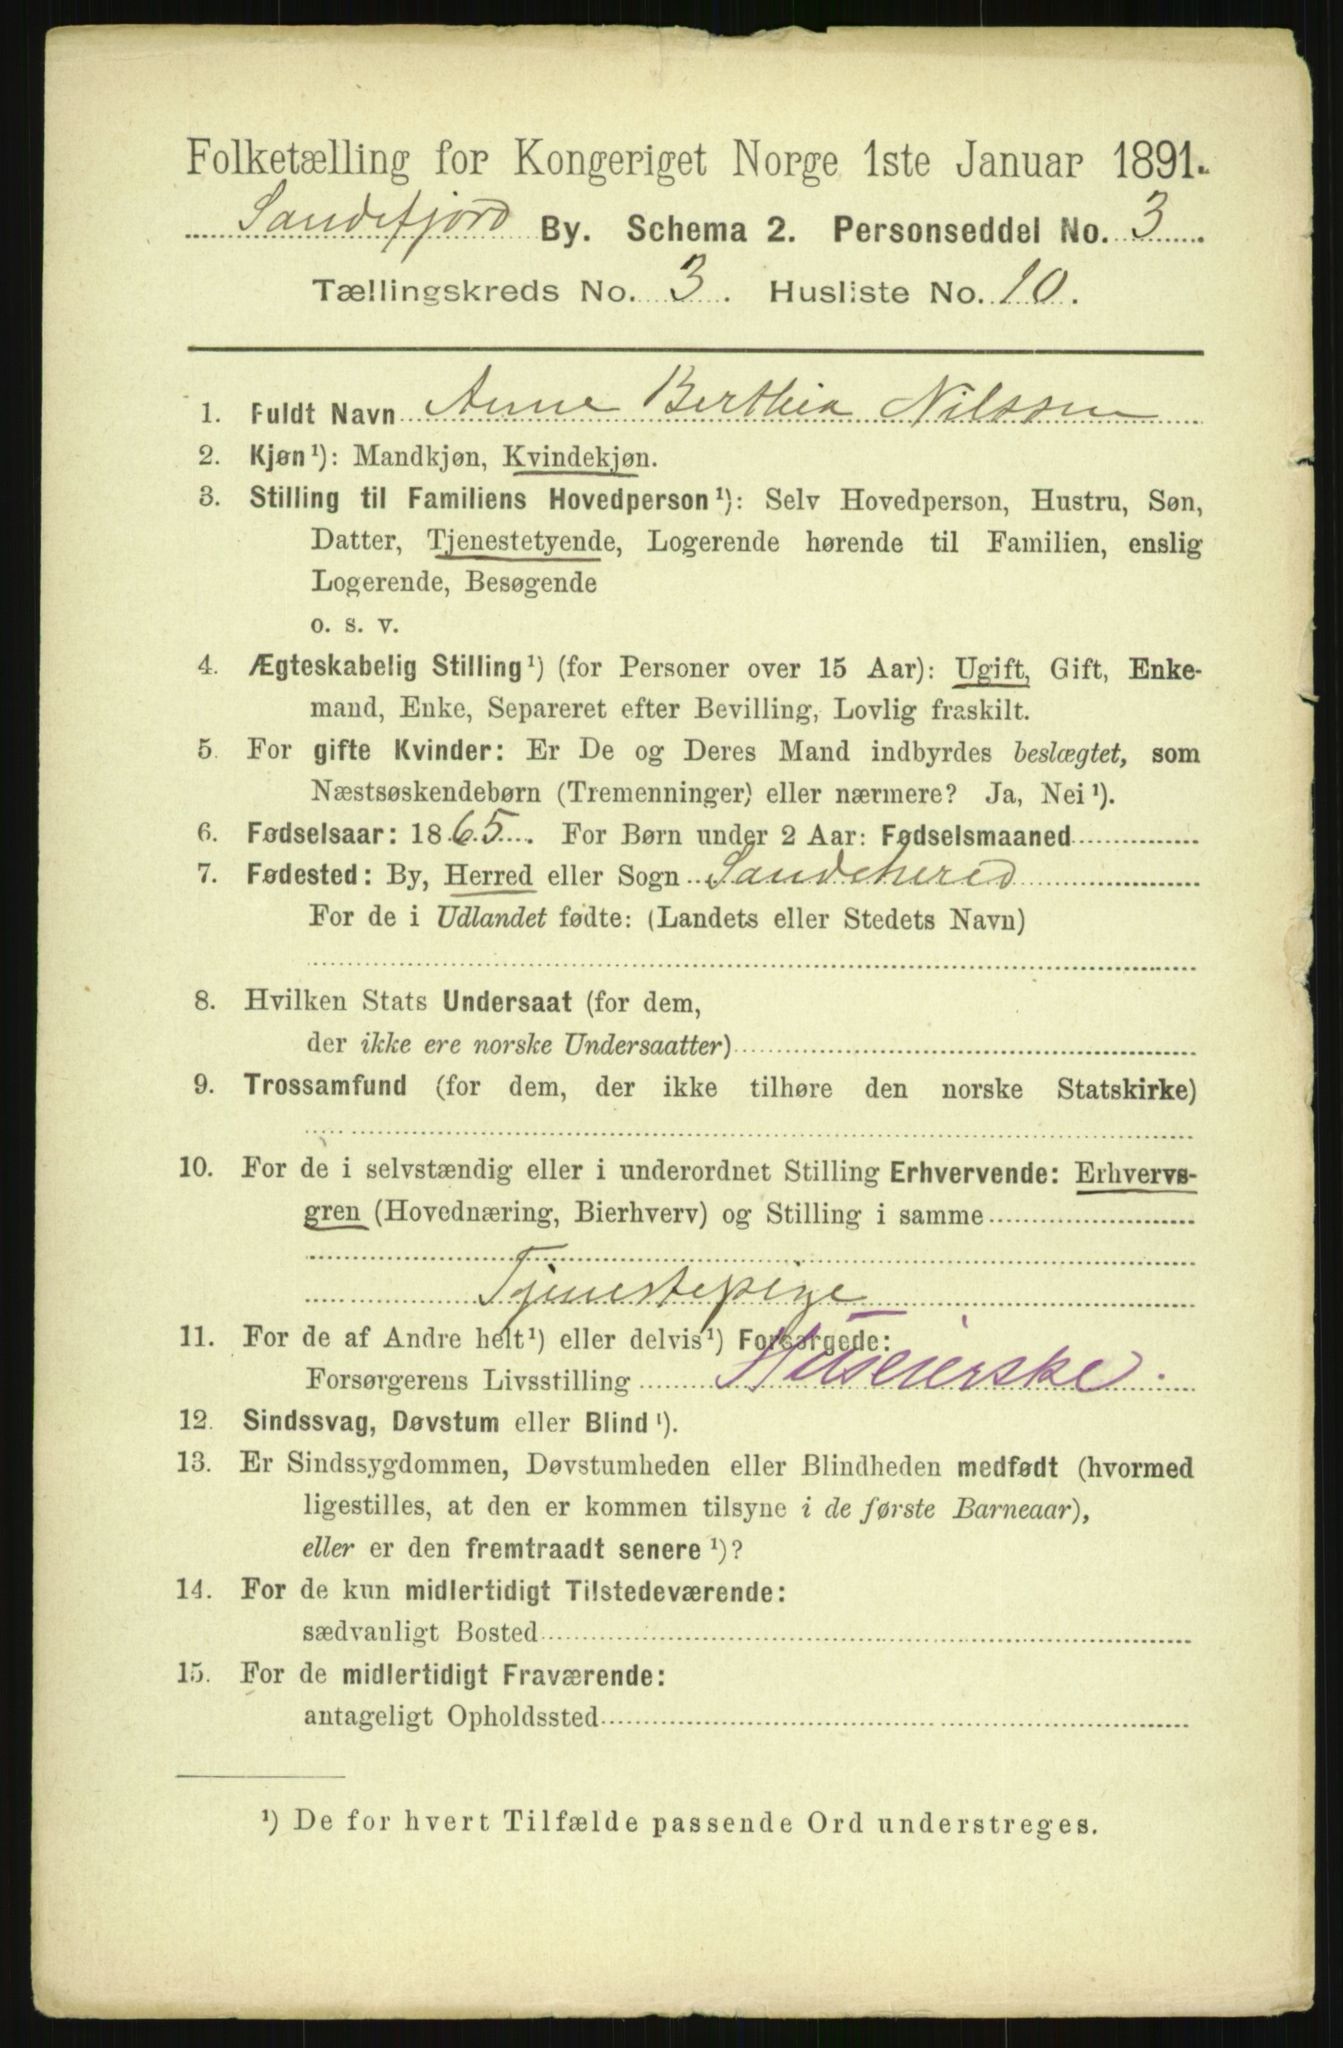 Folketælling for Kongeriget Norge 1ste Januar 1891.
Sandefjord By. Schema 2. Personseddel No. 3.
Tællingskreds No. 3. Husliste No. 10.
1. Fuldt Navn Anne Berthea Nilssen
2. Kjøn¹): Mandkjøn, Kvindekjøn.
3. Stilling til Familiens Hovedperson¹): Selv Hovedperson, Hustru, Søn,
Datter, Tjenestetyende, Logerende hørende til Familien, enslig
Logerende, Besøgende
o. s. v.
4. Ægteskabelig Stilling¹) (for Personer over 15 Aar): Ugift, Gift, Enke-
mand, Enke, Separeret efter Bevilling, Lovlig fraskilt.
5. For gifte Kvinder: Er De og Deres Mand indbyrdes beslægtet, som
Næstsøskendebørn (Tremenninger) eller nærmere? Ja, Nei¹).
6. Fødselsaar: 1865. For Børn under 2 Aar: Fødselsmaaned
7. Fødested: By, Herred eller Sogn Sandeherred
For de i Udlandet fødte: (Landets eller Stedets Navn)
8. Hvilken Stats Undersaat (for dem,
der ikke ere norske Undersaatter)
9. Trossamfund (for dem, der ikke tilhøre den norske Statskirke)
10. For de i selvstændig eller i underordnet Stilling Erhvervende: Erhvervs-
gren (Hovednæring, Bierhverv) og Stilling i samme
Tjenestepige
11. For de af Andre helt¹) eller delvis¹) Forsørgede:
Forsørgerens Livsstilling Huseierske.
12. Sindssvag, Døvstum eller Blind¹).
13. Er Sindssygdommen, Døvstumheden eller Blindheden medfødt (hvormed
ligestilles, at den er kommen tilsyne i de første Barneaar),
eller er den fremtraadt senere¹)?
14. For de kun midlertidigt Tilstedeværende:
sædvanligt Bosted
15. For de midlertidigt Fraværende:
antageligt Opholdssted
¹) De for hvert Tilfælde passende Ord understreges.